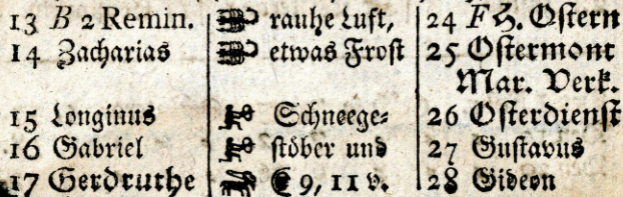 13 B 2 Remin. rauhe Luft, 24 F H. Ostern
14 Zacharias etwas Frost 25 Ostermont
Mar. Verk.
15 Longinus Schneege= 26 Osterdienst
16 Gabriel stöber und 27 Gustavus
17 Gerdruthe 9, 11 v. 28 Gideon